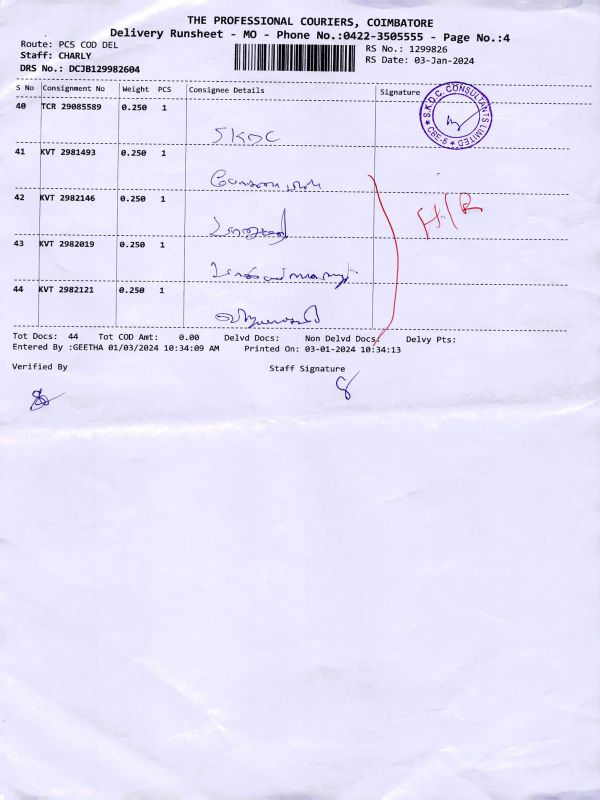 THE PROFESSIONAL COURIERS, COIMBATORE
Delivery Runsheet - MO - Phone No.:0422-3505555 - Page No.:4
Route: PCS COD DEL
Staff: CHARLY
DRS No.: DCJB129982604
RS No.: 1299826
RS Date: 03-Jan-2024
S No Consignment No Weight PCS Consignee Details Signature
40 TCR 29085589 0.250 1
SKDC
S.K.D.C. CONSULTANTS LIMITED ★ CBE-6 ★
41 KVT 2981493 0.250 1
42 KVT 2982146 0.250 1
H/R
43 KVT 2982019 0.250 1
44 KVT 2982121 0.250 1
Tot Docs: 44 Tot COD Amt: 0.00 Delvd Docs: Non Delvd Docs: Delvy Pts:
Entered By :GEETHA 01/03/2024 10:34:09 AM Printed On: 03-01-2024 10:34:13
Verified By Staff Signature